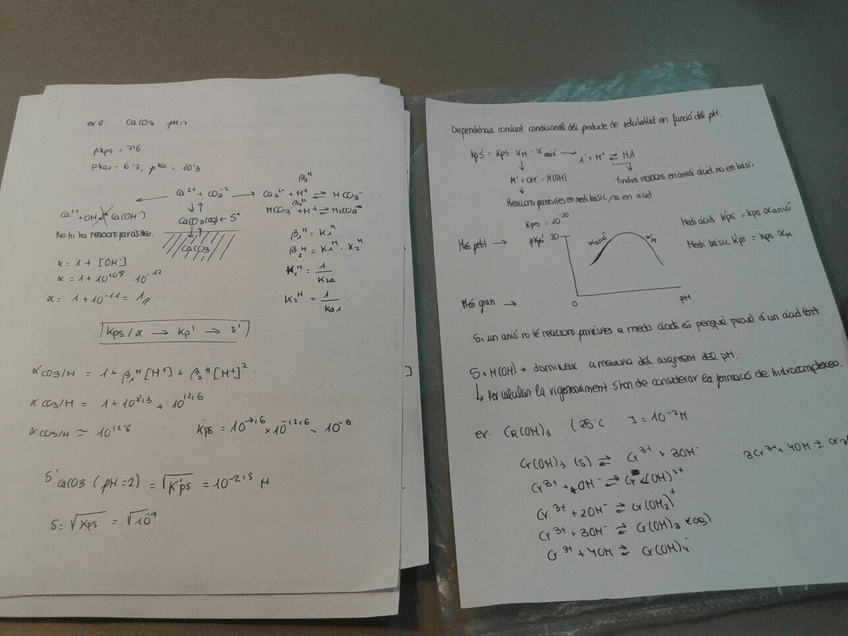 ex 2: CaCO3 pH=2
pKps = 7'6
pKa1 = 6'3; pKa = 10'3
Ca²⁺ + CO3⁻²
β1ᴴ
CO3²⁻ + H⁺ ⇌ HCO3⁻
β2ᴴ
HCO3⁻ + H⁺ ⇌ H2CO3
Ca²⁺ + OH⁻ ⇌ Ca(OH⁻)
CaCO3(aq) ← S°
No hi ha reaccions paràsites.
CaCO3
β1ᴴ = K1ᴴ
β2ᴴ = K1ᴴ · K2ᴴ
α = 1 + [OH⁻]
K1ᴴ = 1/Ka2
α = 1 + 10⁻¹¹ = 1
K2ᴴ = 1/Ka1
Kps/α → Kp' → S'
αCO3/H = 1 + β1ᴴ[H⁺] + β2ᴴ[H⁺]²
αCO3/H = 1 + 10^8'3 + 10^12'6
αCO3/H ≈ 10^12'6
S' CaCO3 (pH=2) = √K'ps = 10^-2'5 M
S = √Kps =
Dependència constant condicional del producte de solubilitat en funció del pH.
Kps' = Kps · αM · α anió → A⁻ + H⁺ ⇌ HA
M⁺ + OH⁻ = M(OH)
tindrà reaccions en medi àcid, no en bàsic
Reaccions paràsites en medi bàsic, no en àcid
Kps = 10⁻²⁰
Més petit → pKps' 20
α anió
αM
Medi àcid K'ps = Kps α anió
Medi bàsic K'ps = Kps · αM
Més gran →
0 pH
Si un anió no té reaccions paràsites a medis àcids és perquè prové d'un àcid fort
S → M(OH) → dominex a mesura del augment del pH.
↳ Per calcular-la rigorosament s'han de considerar la formació de hidrocomplexos.
ex: Cr(OH)3 (25°C I = 10⁻²M
Cr(OH)3 (s) ⇌ Cr³⁺ + 3OH⁻
3Cr³⁺ + 4OH ⇌ Cr3
Cr³⁺ + OH⁻ ⇌ Cr(OH)²⁺
Cr³⁺ + 2OH⁻ ⇌ Cr(OH2)⁺
Cr³⁺ + 3OH⁻ ⇌ Cr(OH)3 (aq)
Cr³⁺ + 4OH ⇌ Cr(OH)4⁻